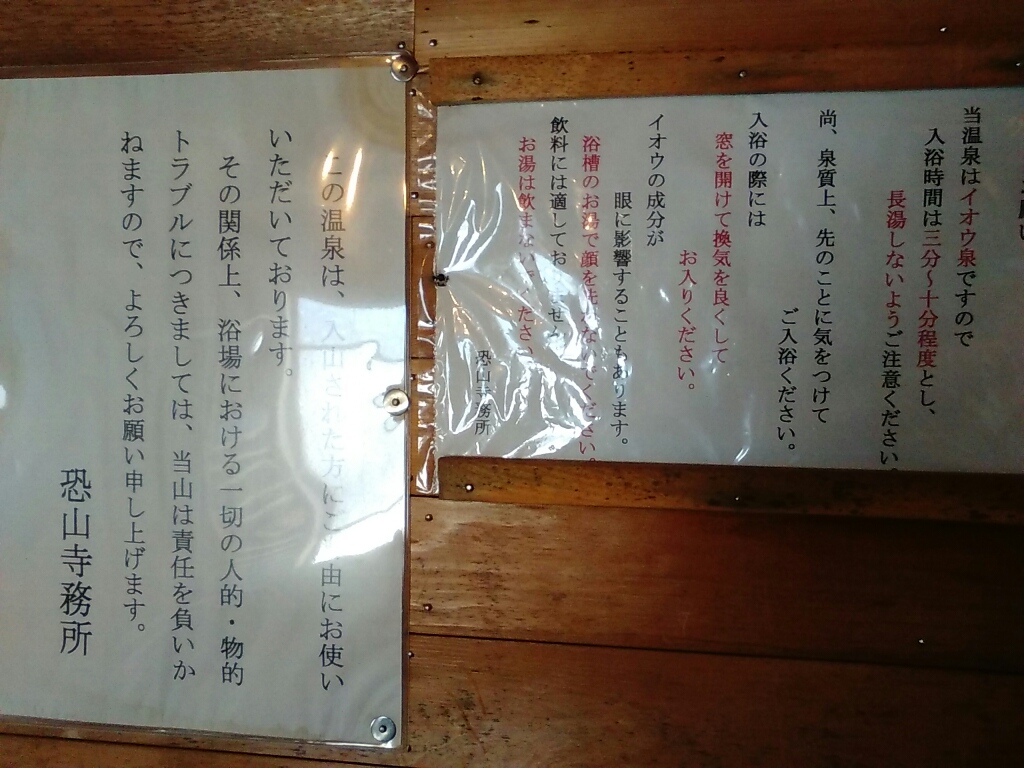 当温泉はイオウ泉ですので
入浴時間は三分～十分程度とし、
長湯しないようご注意ください。
尚、泉質上、先のことに気をつけて
ご入浴ください。
入浴の際には
窓を開けて換気を良くして
お入りください。
イオウの成分が
眼に影響することもあります。
浴槽のお湯で顔を洗わないでください。
飲料には適してお せん
お湯は飲まないでください。
恐山寺務所
この温泉は、入山された方にご 由にお使い
いただいております。
その関係上、浴場における一切の人的・物的
トラブルにつきましては、当山は責任を負いか
ねますので、よろしくお願い申し上げます。
恐山寺務所